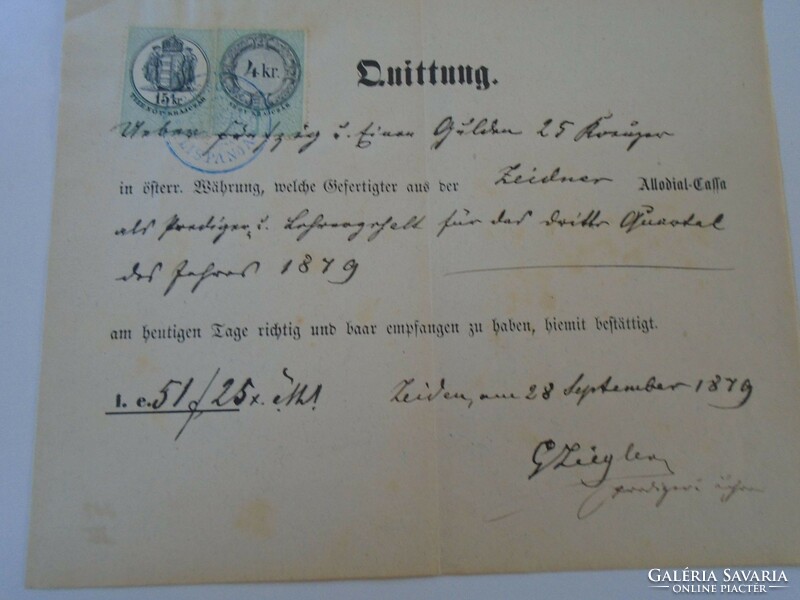 Quittung.
15 kr.
4 kr.
TIZENÖT KRAJCZÁR
NÉGY KRAJCZÁR
Ueber Fünfzig u. Einen Gulden 25 Kreuzer
in österr. Währung, welche Gefertigter aus der Zeidner Allodial-Cassa
als Prediger u. Lehrergehalt für das dritte Quartal
des Jahres 1879
am heutigen Tage richtig und baar empfangen zu haben, hiemit bestättigt.
I. e. 51 f 25 x.
Zeiden, am 28 September 1879
G Ziegler
GALÉRIA SAVARIA
ONLINE PIACTÉR